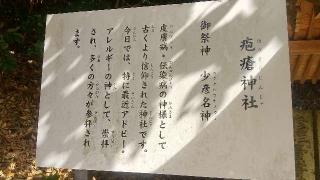 疱瘡神社
御祭神 少彦名神
皮膚病・伝染病の神様として
古くより信仰された神社です。
今日では、特に最近アトピー、
アレルギーの神として、崇拝
され、多くの方々が参拝され
ます。